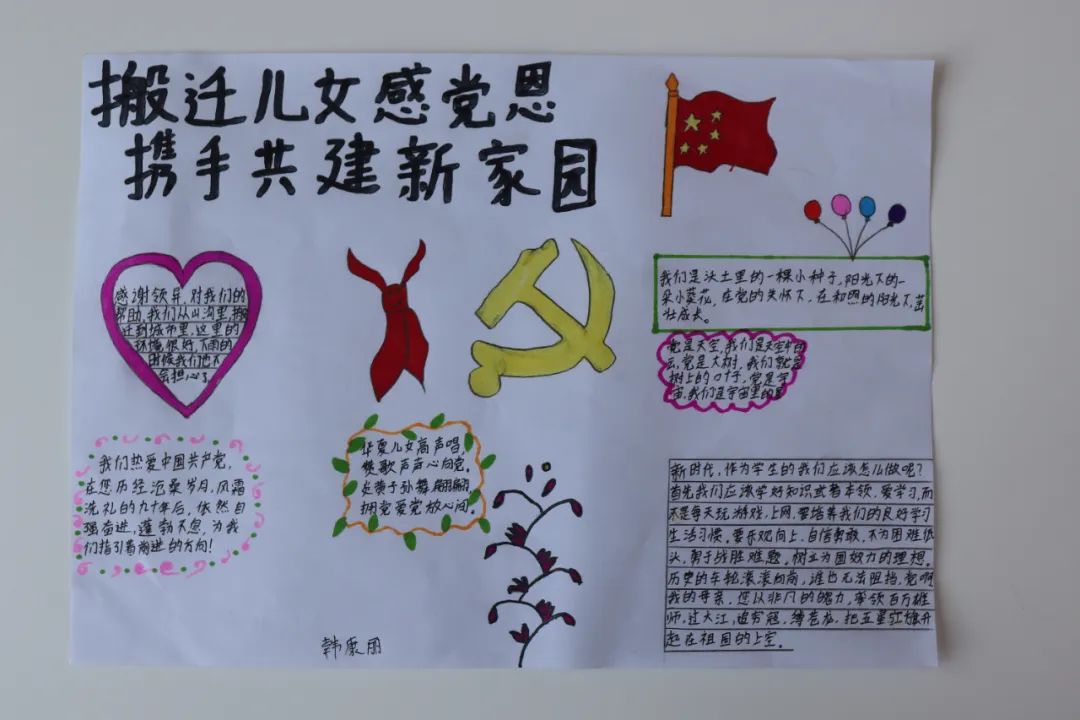 搬迁儿女感党恩
携手共建新家园
感谢领导,对我们的
帮助,我们从山沟里,搬
迁到城市里,这里的
环境很好,下雨的
时候我们也不
会担心了
我们是沃土里的一棵小种子,阳光下的一
朵小葵花,在党的关怀下,在和煦的阳光下,茁
壮成长。
党是天空,我们是天空中的
云,党是大树,我们就是
树上的叶子,党是宇
宙,我们是宇宙里的星
我们热爱中国共产党,
在您历经沧桑岁月,风霜
洗礼的九十年后,依然自
强奋进,蓬勃不息,为我
们指引着前进的方向!
华夏儿女高声唱,
赞歌声声心向党。
炎黄子孙舞翩翩
拥党爱党放心间。
新时代,作为学生的我们应该怎么做呢?
首先我们应该学好知识或者本领,爱学习,而
不是每天玩游戏,上网,要培养我们的良好学习
生活习惯。要乐观向上,自信勇敢,不为困难低
头,勇于战胜难题,树立为国努力的理想。
历史的车轮滚滚向前,谁也无法阻挡,党啊
我的母亲,您以非凡的魄力,率领百万雄
师,过大江,追穷寇,缚苍龙,把五星红旗升
起在祖国的上空。
韩康丽